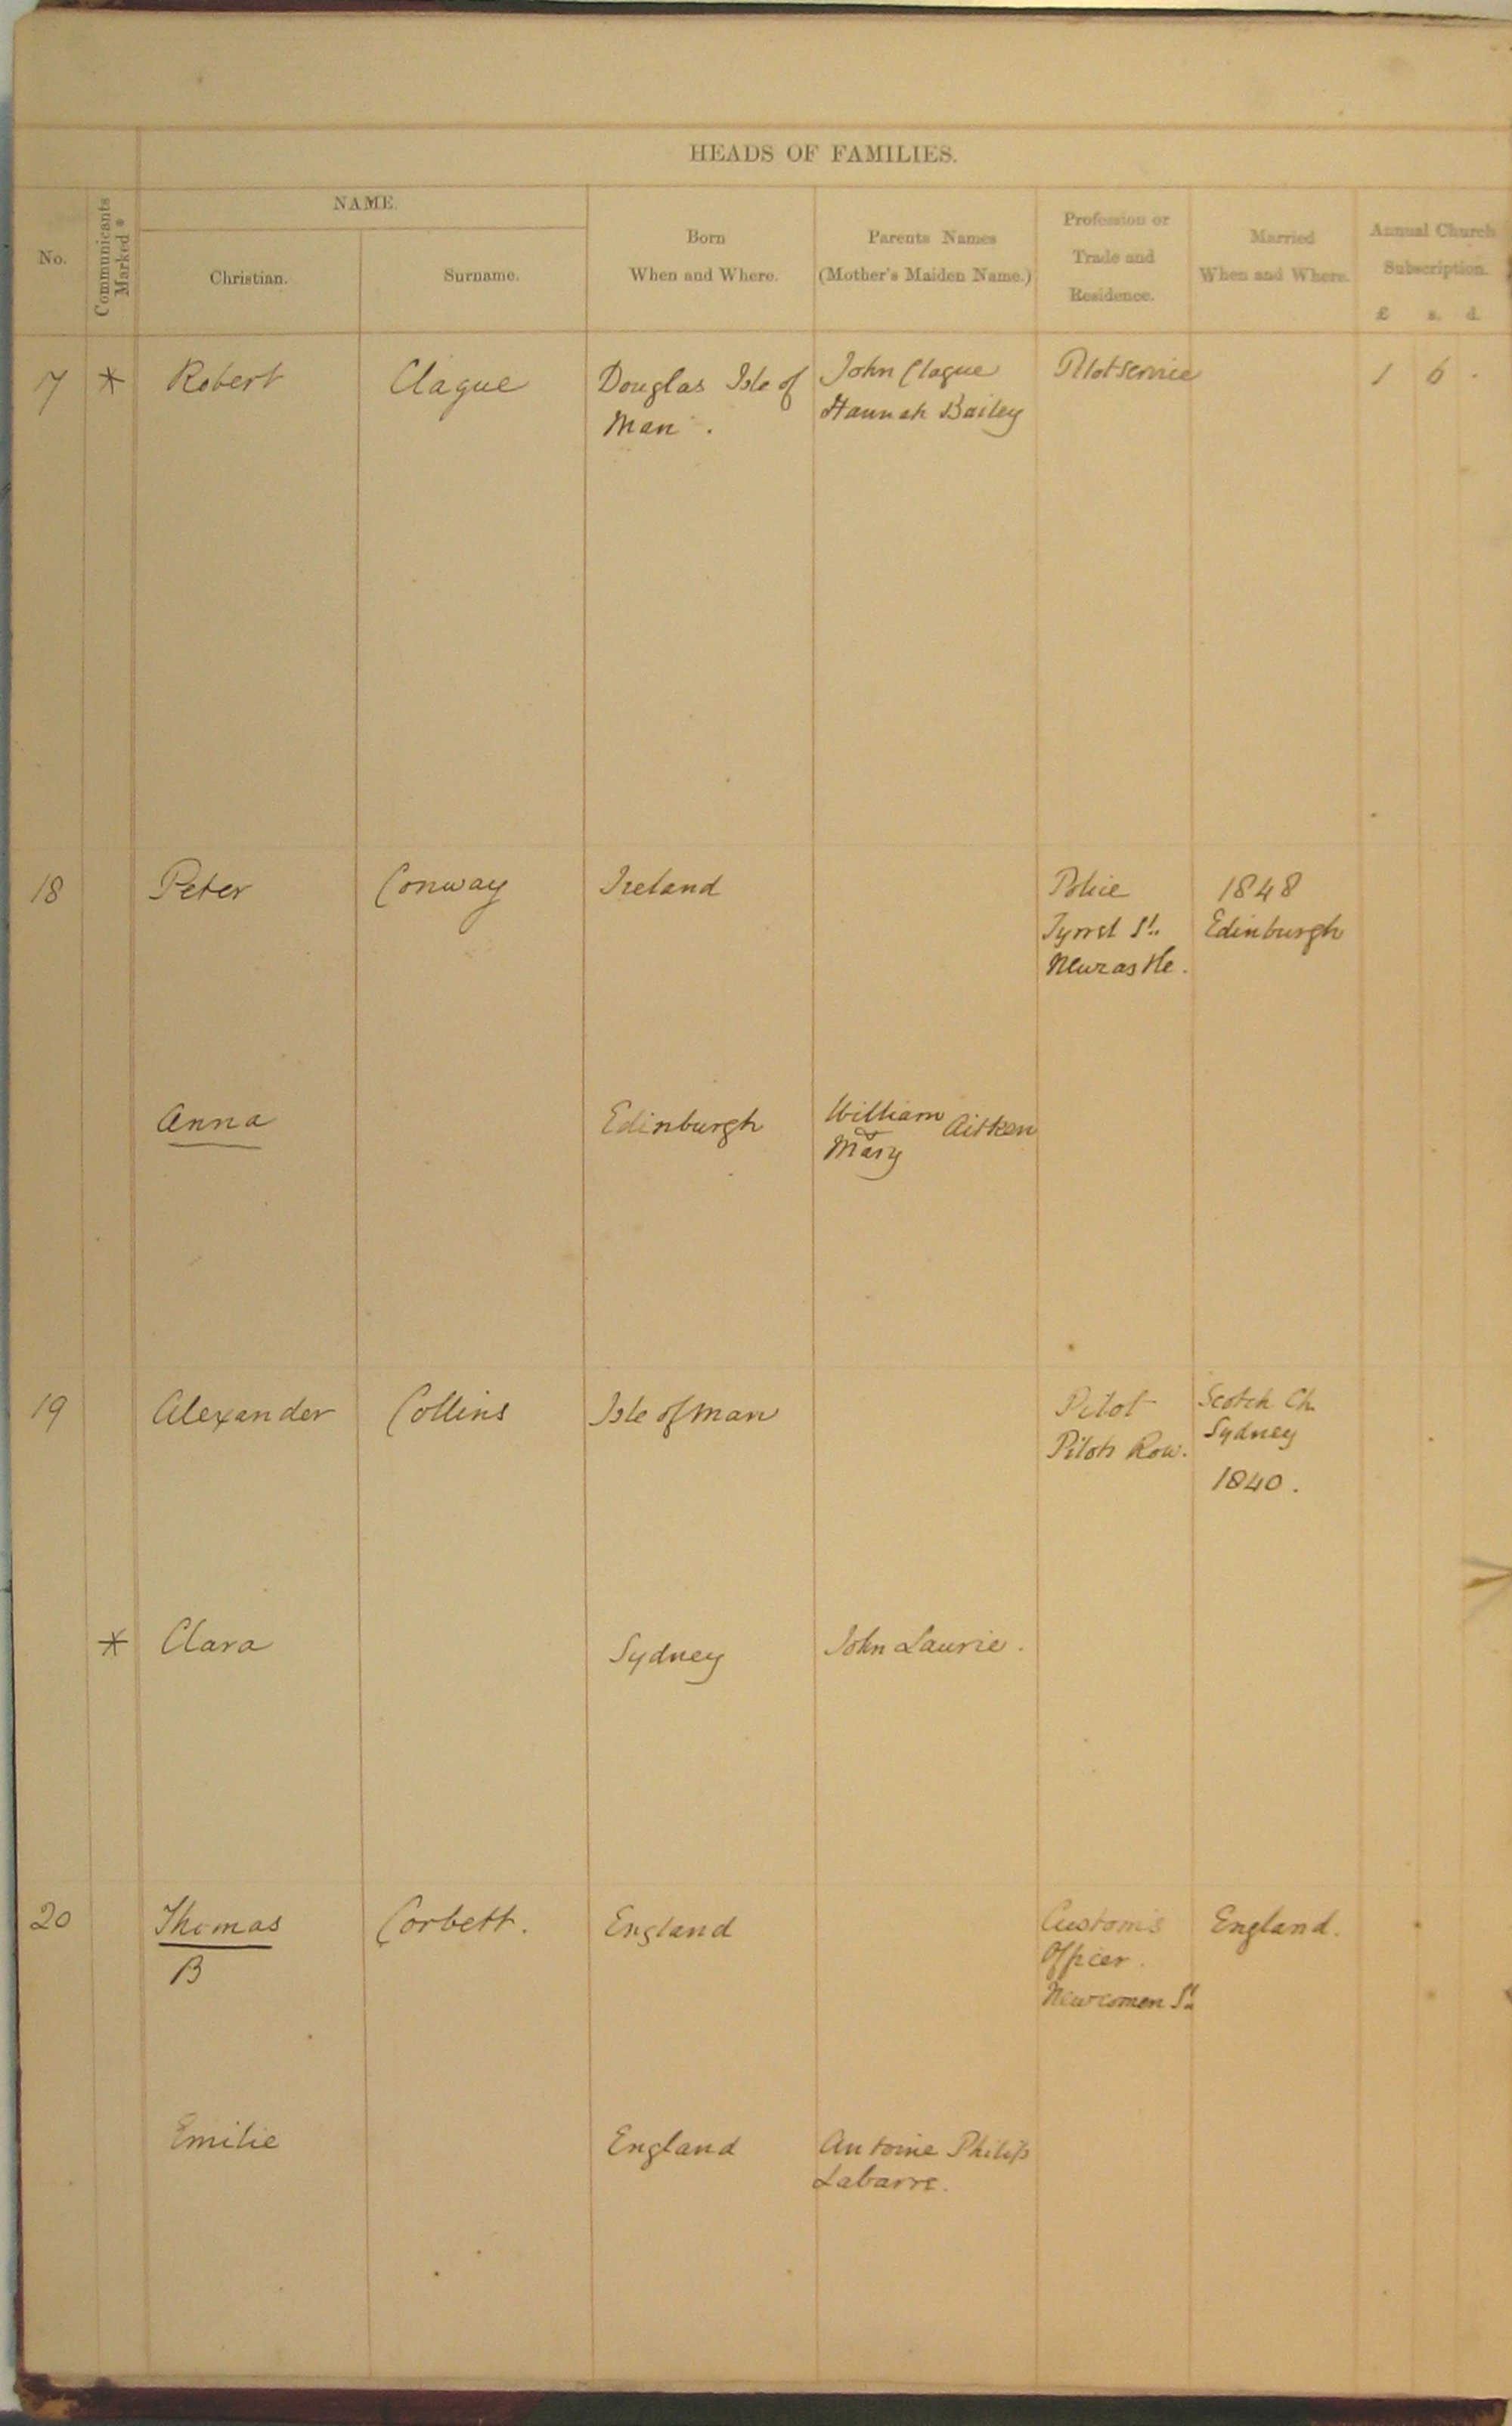 HEADS OF FAMILIES.
No.
Communicants
Marked *
NAME.
Christian.
Surname.
Born
When and Where.
Parents Names
(Mother's Maiden Name.)
Profession or
Trade and
Residence.
Married
When and Where.
Annual Church
Subscription.
£ s. d.
7 * Robert Clague Douglas Isle of John Clague Pilot Service 1 6 .
Man . Hannah Bailey
18 Peter Conway Ireland Police 1848
Tyrrel St. Edinburgh
Newcastle.
Anna Edinburgh William & Mary Aitken
19 Alexander Collins Isle of Man Pilot Scotch Ch.
Pilots Row. Sydney
1840.
* Clara Sydney John Laurie.
20 Thomas Corbett. England Customs England.
B Officer.
Newcomen St.
Emilie England Antoine Philip
Labarre.